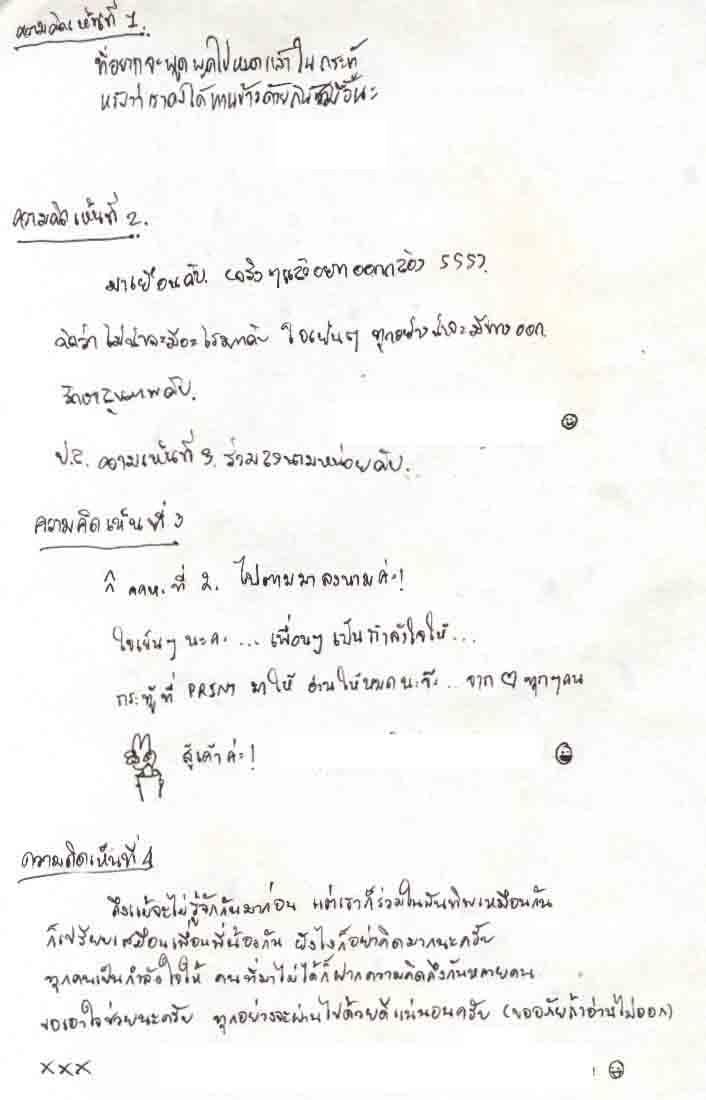 ความคิดเห็นที่ 1.
ที่อยากจะพูด พูดไปหมดแล้วในกระทู้
หวังว่าเราคงได้ทานข้าวด้วยกันนะ
ความคิดเห็นที่ 2.
มาเยือนคับ. จริงๆแล้วอยากออกกล้อง 555ว.
คิดว่าไม่น่าจะมีอะไรมากคับ ใจเย็นๆ ทุกอย่างน่าจะมีทางออก.
รักษาสุขภาพคับ.
ป.ล. ความเห็นที่ 3. ร่วมลงนามหน่อยคับ.
ความคิดเห็นที่ 3
คคห. ที่ 2. ไปตามมาลงนามค่ะ!
ใจเย็นๆ นะคะ ... เพื่อนๆ เป็นกำลังใจให้...
กระทู้ที่ PRINT มาให้ อ่านให้หมดนะจ๊ะ.. จาก ♡ ทุกๆคน
สู้เค้าค่ะ!
ความคิดเห็นที่ 4
ถึงแม้จะไม่รู้จักกันมาก่อน แต่เราก็ร่วมในพันทิพเหมือนกัน
ก็เปรียบเสมือนเพื่อนพี่น้องกัน ยังไงก็อย่าคิดมากนะครับ
ทุกคนเป็นกำลังใจให้ คนที่มาไม่ได้ก็ฝากความคิดถึงกันหลายคน
ขอเอาใจช่วยนะครับ ทุกอย่างจะผ่านไปด้วยดีแน่นอนครับ (ขออภัยถ้าอ่านไม่ออก)
xxx